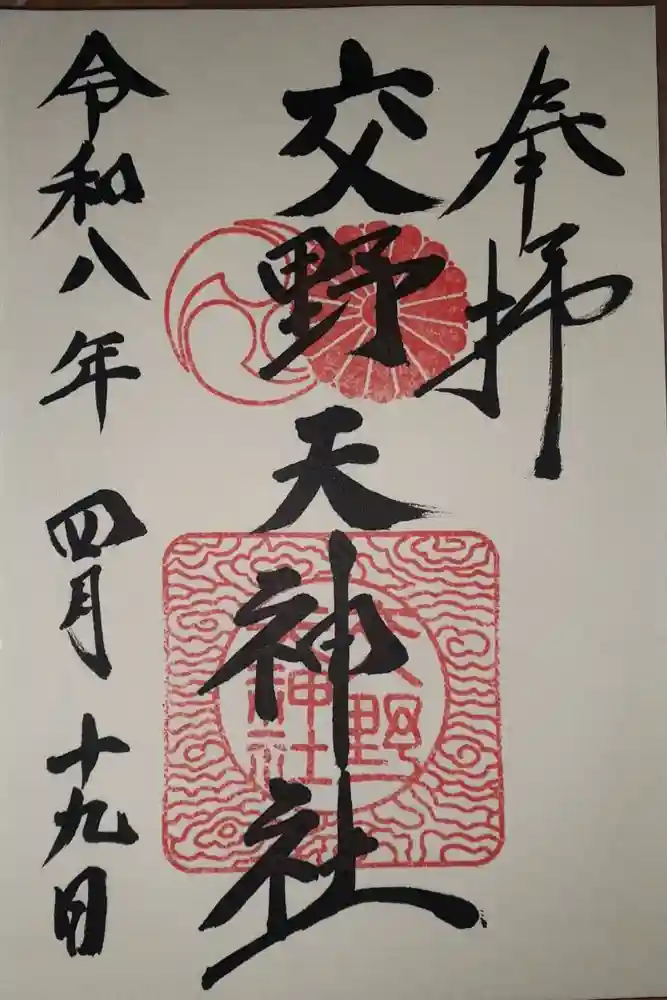 奉拝
交野天神社
令和八年 四月 十九日
交野
天神社